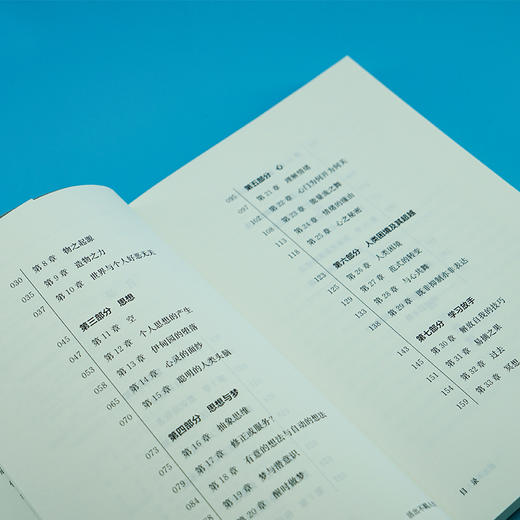 030 第 8 章 物之起源
035 第 9 章 造物之力
037 第 10 章 世界与个人好恶无关
第三部分 思想
045 第 11 章 空
047 第 12 章 个人思想的产生
054 第 13 章 伊甸园的堕落
058 第 14 章 心灵的面纱
065 第 15 章 聪明的人类头脑
070
第四部分 思想与梦
073 第 16 章 抽象思维
079 第 17 章 修正或服务?
084 第 18 章 有意的想法与自动的想法
第 19 章 梦与潜意识
第 20 章 醒时做梦
第五部分 心
095 第 21 章 理解情绪
097 第 22 章 心门为何开为何关
102 第 23 章 能量流之舞
113 第 24 章 情绪的缘由
118 第 25 章 心之秘密
第六部分 人类困境及其超越
123 第 26 章 人类困境
125 第 27 章 范式的转变
132 第 28 章 与心共舞
138 第 29 章 既非抑制亦非表达
第七部分 学习放手
143 第 30 章 解放自我的技巧
145 第 31 章 易摘之果
154 第 32 章 过去
159 第 33 章 冥想
目录